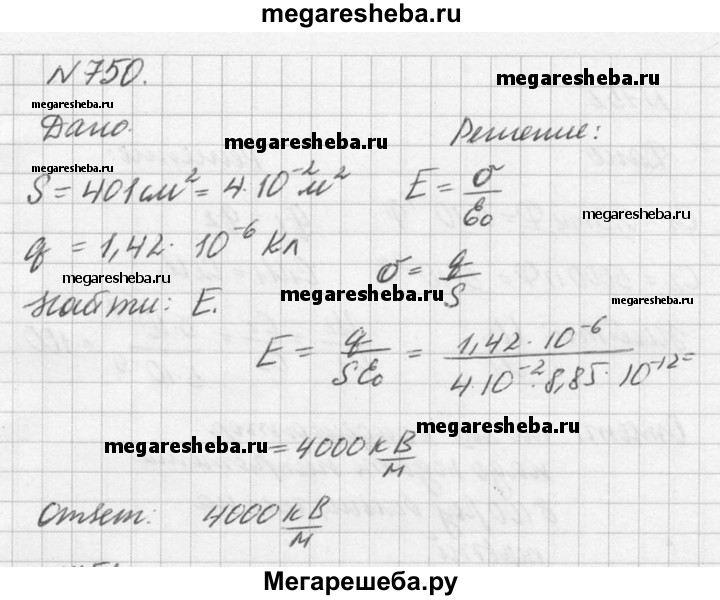 megaresheba.ru
N 750.
megaresheba.ru
megaresheba.ru
Дано.
megaresheba.ru
Решение:
megaresheba.ru
S = 401 см² = 4·10⁻² м²
E = σ/ε₀
megaresheba.ru
q = 1,42 · 10⁻⁶ Кл
σ = q/S
megaresheba.ru
megaresheba.ru
megaresheba.ru
Найти: E.
E = q/Sε₀ = 1,42 · 10⁻⁶/4·10⁻²·8,85·10⁻¹² =
megaresheba.ru
megaresheba.ru
= 4000 кВ/м
Ответ: 4000 кВ/м
Мегарешеба.ру